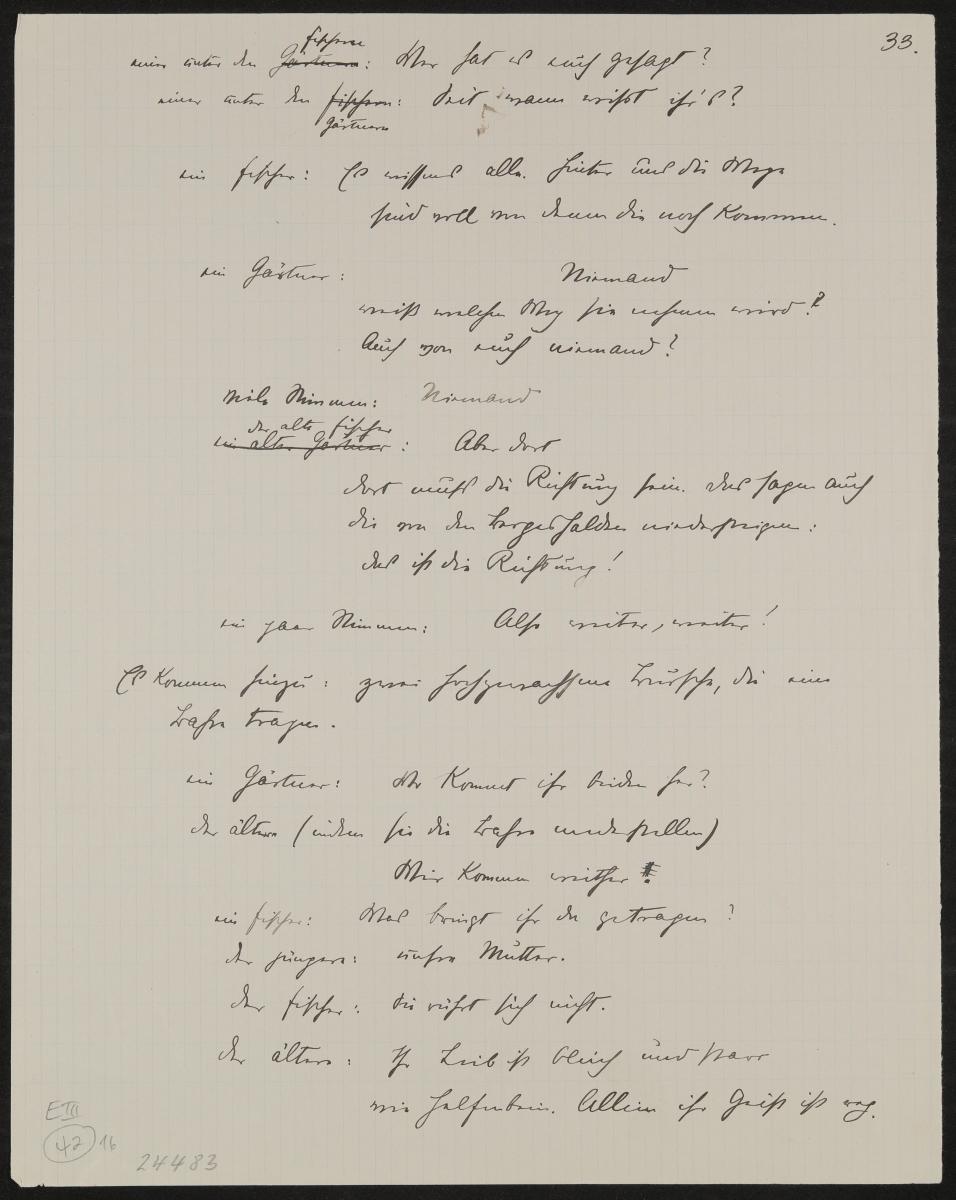 33.
einer unter den Gärtnern fischern: Wer hat es euch gesagt?
einer unter den fischern: Seit wann wißt ihr's?
Gärtnern
ein fischer: Es wissens alle. Hinter uns die Wege
sind voll von denen die noch kommen.
ein Gärtner: Niemand
weiß welchen Weg sie nehmen wird?
Auch von euch niemand?
viele Stimmen: Niemand
der alte fischer
ein alter Gärtner: Aber dort
dort muss die Richtung sein. das sagen auch
die von den Bergeshalden niedersteigen:
das ist die Richtung!
ein paar Stimmen: Also weiter, weiter!
Es kommen hinzu: zwei hochgewachsene Bursche, die eine
Bahre tragen.
ein Gärtner: Wo kommt ihr beiden her?
der ältere (indem sie die Bahre niederstellen)
Wir kommen weither!
ein fischer: Was bringt ihr da getragen?
der jüngere: unsre Mutter.
der fischer: die rührt sich nicht.
der ältere: Ihr Leib ist bleich und starr
wie Helfenbein. Allein ihr Geist ist weg.
E III
42 16
24483